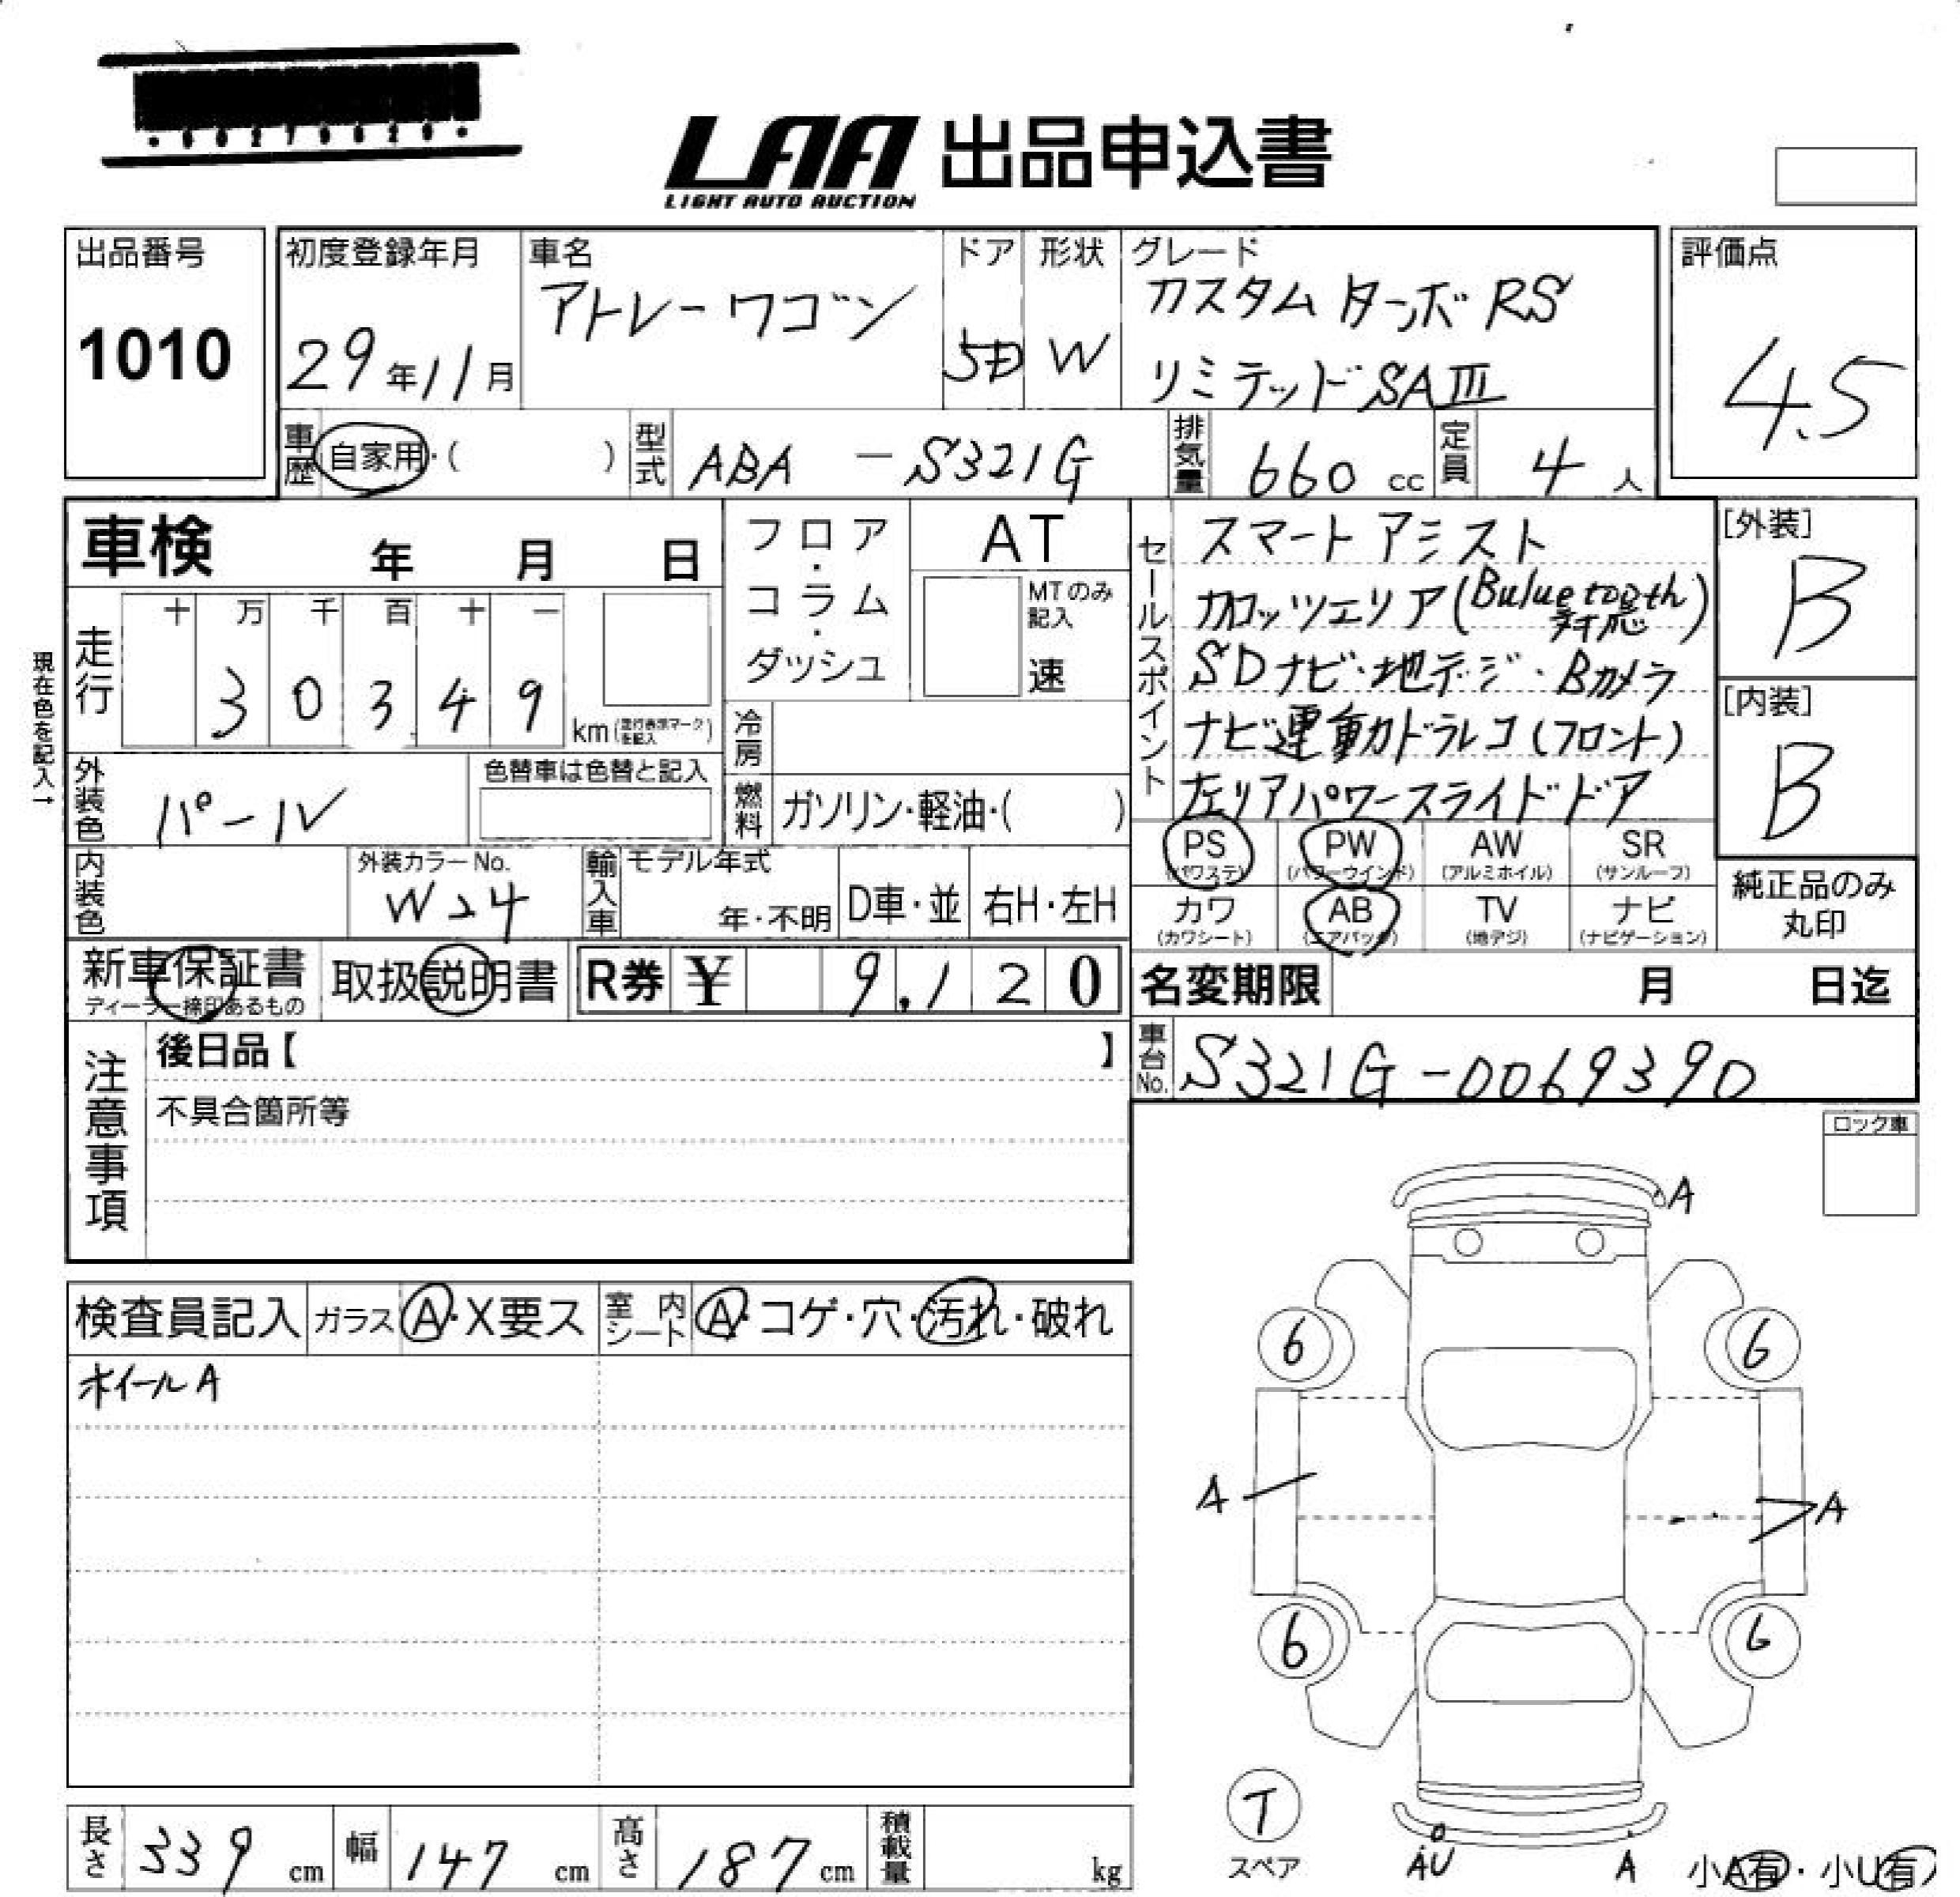 LAA 出品申込書
LIGHT AUTO AUCTION
出品番号
1010
初度登録年月
29年11月
車名
アトレーワゴン
ドア
5D
形状
W
グレード
カスタムターボRS
リミテッドSAⅢ
評価点
4.5
車歴
自家用・( )
型式
ABA-S321G
排気量
660 cc
定員
4 人
車検 年 月 日
フロア・コラム・ダッシュ
AT
MTのみ
記入
速
現在色を記入→
走行
十 万 千 百 十 一
3 0 3 4 9
km(走行表示マークを記入)
冷房
外装色
パール
色替車は色替と記入
燃料
ガソリン・軽油・( )
内装色
外装カラーNo.
W24
輸入車
モデル年式
年・不明
D車・並
右H・左H
セールスポイント
スマートアミスト
カロッツェリア(Buluetooth対応)
SDナビ・地デジ・Bカメラ
ナビ連動力ドラレコ(フロント)
左リアパワースライドドア
[外装]
B
[内装]
B
PS
(パワステ)
PW
(パワーウインド)
AW
(アルミホイル)
SR
(サンルーフ)
カワ
(カワシート)
AB
(エアバック)
TV
(地デジ)
ナビ
(ナビゲーション)
純正品のみ
丸印
新車保証書
ディーラー捺印あるもの
取扱説明書
R券 ¥ 9,120
名変期限 月 日迄
車台No.
S321G-0069390
注意事項
後日品【 】
不具合箇所等
ロック車
検査員記入
ガラス
A・X要ス
室内シート
A・コゲ・穴・汚れ・破れ
ホイールA
A
6
6
A
A
6
6
T
スペア
AU
A
小A有・小U有
長さ
339 cm
幅
147 cm
高さ
187 cm
積載量
kg